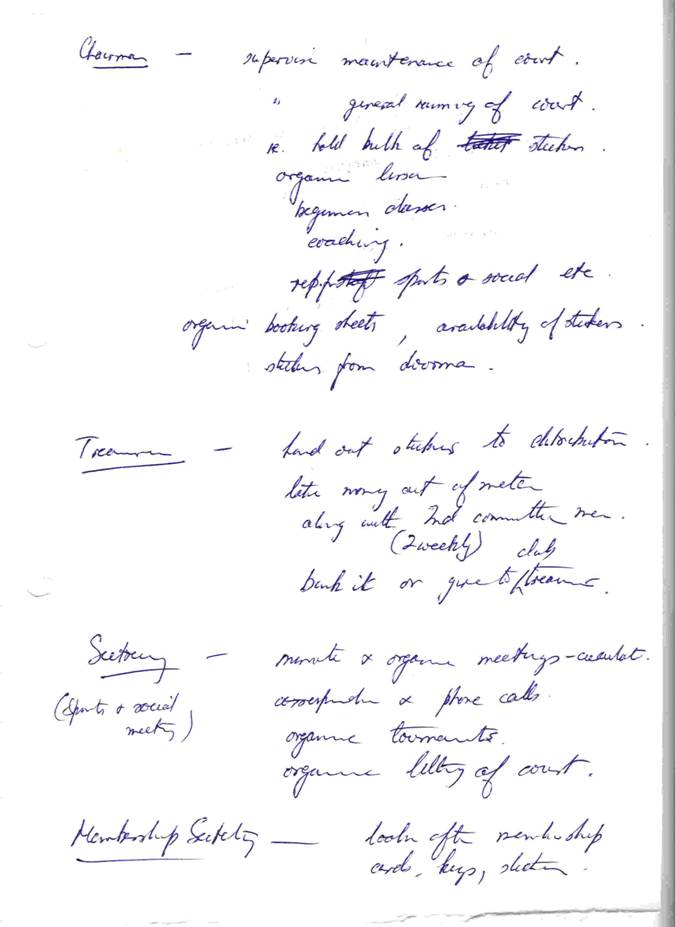 Chairman — supervise maintenance of court.
" general running of court.
ie. hold bulk of stickers.
organise
beginners classes.
coaching.
rep. for sports & social etc.
organise booking sheets, availability of stickers.
stickers from
Treasurer — hand out stickers to distribution.
take money out of meter
along with 2nd committee mem.
(2 weekly) club
bank it or give to / treasurer.
Secretary — minute & organise meetings - circulat.
(Sports & social correspondence & phone calls.
meeting) organise tournaments.
organise letting of court.
Membership Secretary — looks after membership
cards, keys, stickers.